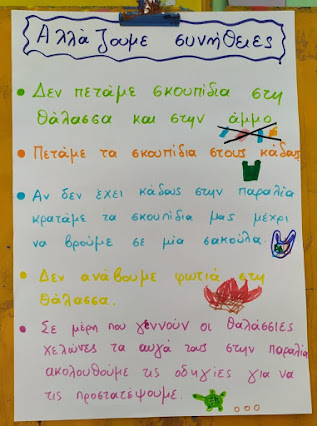 Αλλάζουμε συνήθειες
• Δεν πετάμε σκουπίδια στη
θάλασσα και στην άμμο
• Πετάμε τα σκουπίδια στους κάδους
• Αν δεν έχει κάδους στην παραλία
κρατάμε τα σκουπίδια μας μέχρι
να βρούμε σε μία σακούλα.
• Δεν ανάβουμε φωτιά στη
θάλασσα.
• Σε μέρη που γεννούν οι θαλάσσιες
χελώνες τα αυγά τους στην παραλία
ακολουθούμε τις οδηγίες για να
τις προστατέψουμε.